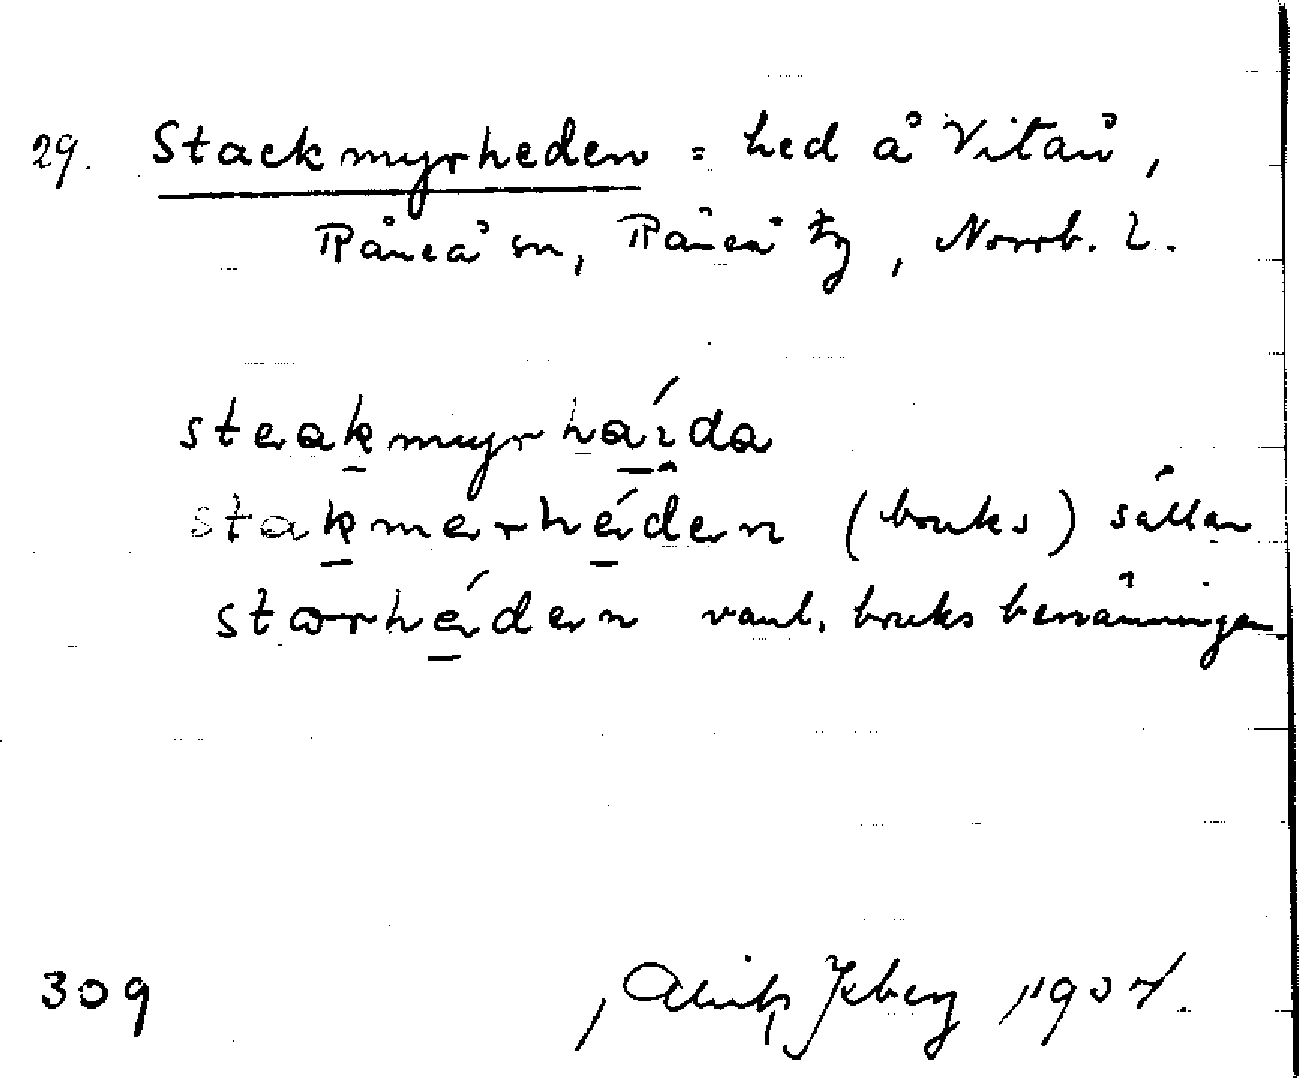 29. Stackmyrheden = hed å Vitån,
Råneå sn, Råneå tg, Norrb. L.
steakmyrháida
stakmerhéden (bruks) sällan
storhéden vanl. bruks benämningen
309
1907.